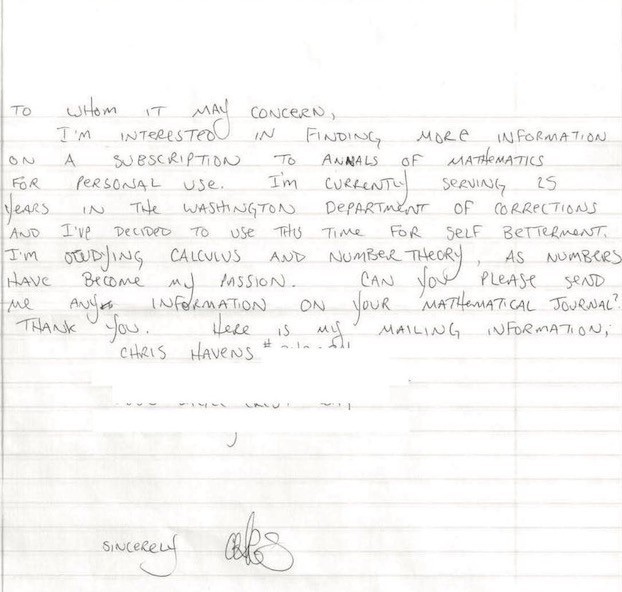 TO WHOM IT MAY CONCERN,
I'M INTERESTED IN FINDING MORE INFORMATION
ON A SUBSCRIPTION TO ANNALS OF MATHEMATICS
FOR PERSONAL USE. I'M CURRENTLY SERVING 25
YEARS IN THE WASHINGTON DEPARTMENT OF CORRECTIONS
AND I'VE DECIDED TO USE THIS TIME FOR SELF BETTERMENT.
I'M STUDYING CALCULUS AND NUMBER THEORY, AS NUMBERS
HAVE BECOME MY PASSION. CAN YOU PLEASE SEND
ME ANY INFORMATION ON YOUR MATHEMATICAL JOURNAL?
THANK YOU. HERE IS MY MAILING INFORMATION;
CHRIS HAVENS #
SINCERELY